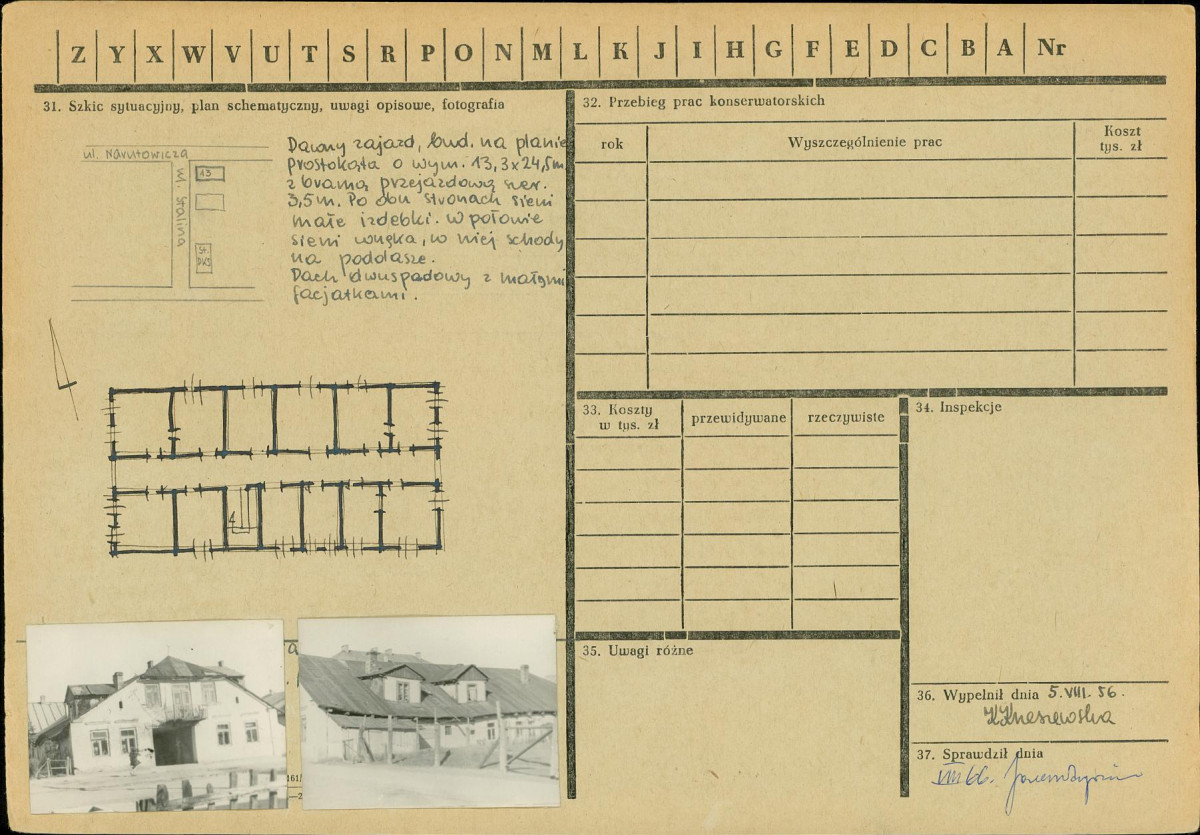 Z Y X W V U T S R P O N M L K J I H G F E D C B A Nr
31. Szkic sytuacyjny, plan schematyczny, uwagi opisowe, fotografia
ul. Narutowicza
13
ul. Stalina
Dawny zajazd, bud. na planie
prostokąta o wym. 13,3x24,5m
z bramą przejazdową szer.
3,5m. Po obu stronach sieni
małe izdebki. W połowie
sieni wnęka, w niej schody
na poddasze.
Dach dwuspadowy z małymi
facjatkami.
32. Przebieg prac konserwatorskich
rok
Wyszczególnienie prac
Koszt
tys. zł
33. Koszty
w tys. zł
przewidywane
rzeczywiste
34. Inspekcje
35. Uwagi różne
36. Wypełnił dnia 5.VIII.56.
37. Sprawdził dnia
161/